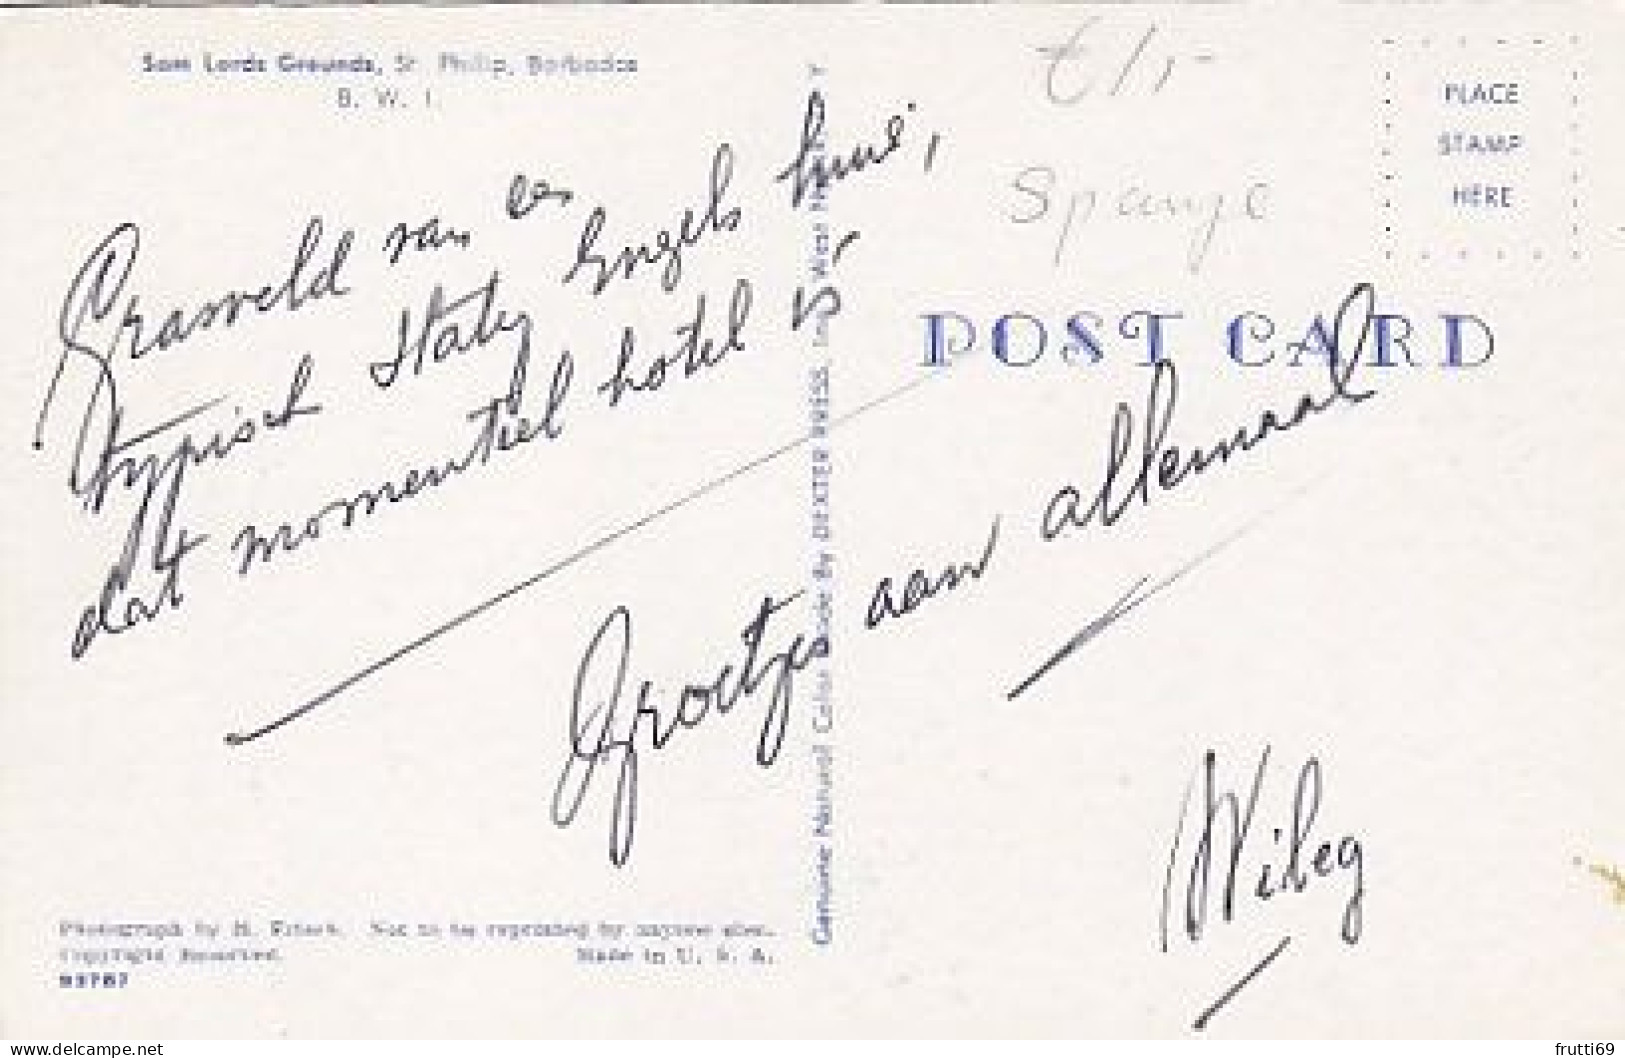 Sam Lords Grounds, St. Philip, Barbados
B. W. I.
Grasveld van een
typisch Engels huis,
dat momenteel hotel is
Groetjes aan allemaal
Genuine Natural Color Made By DEXTER PRESS, Inc. West
€ 1,-
PLACE
STAMP
HERE
POST CARD
Photograph by H. Not to be reprinted by anyone else.
Copyright Reserved. Made in U. S. A.
frutti69
https://www.delcampe.net